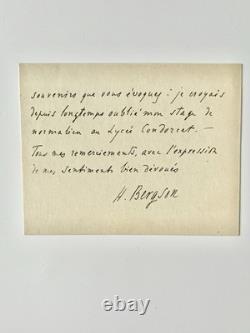 souvenirs que vous évoquez : je croyais
depuis longtemps oublié mon stage de
normalien au Lycée Condorcet. —
Tous mes remerciements, avec l'expression
de mes sentiments bien dévoués
H. Bergson
© ebay